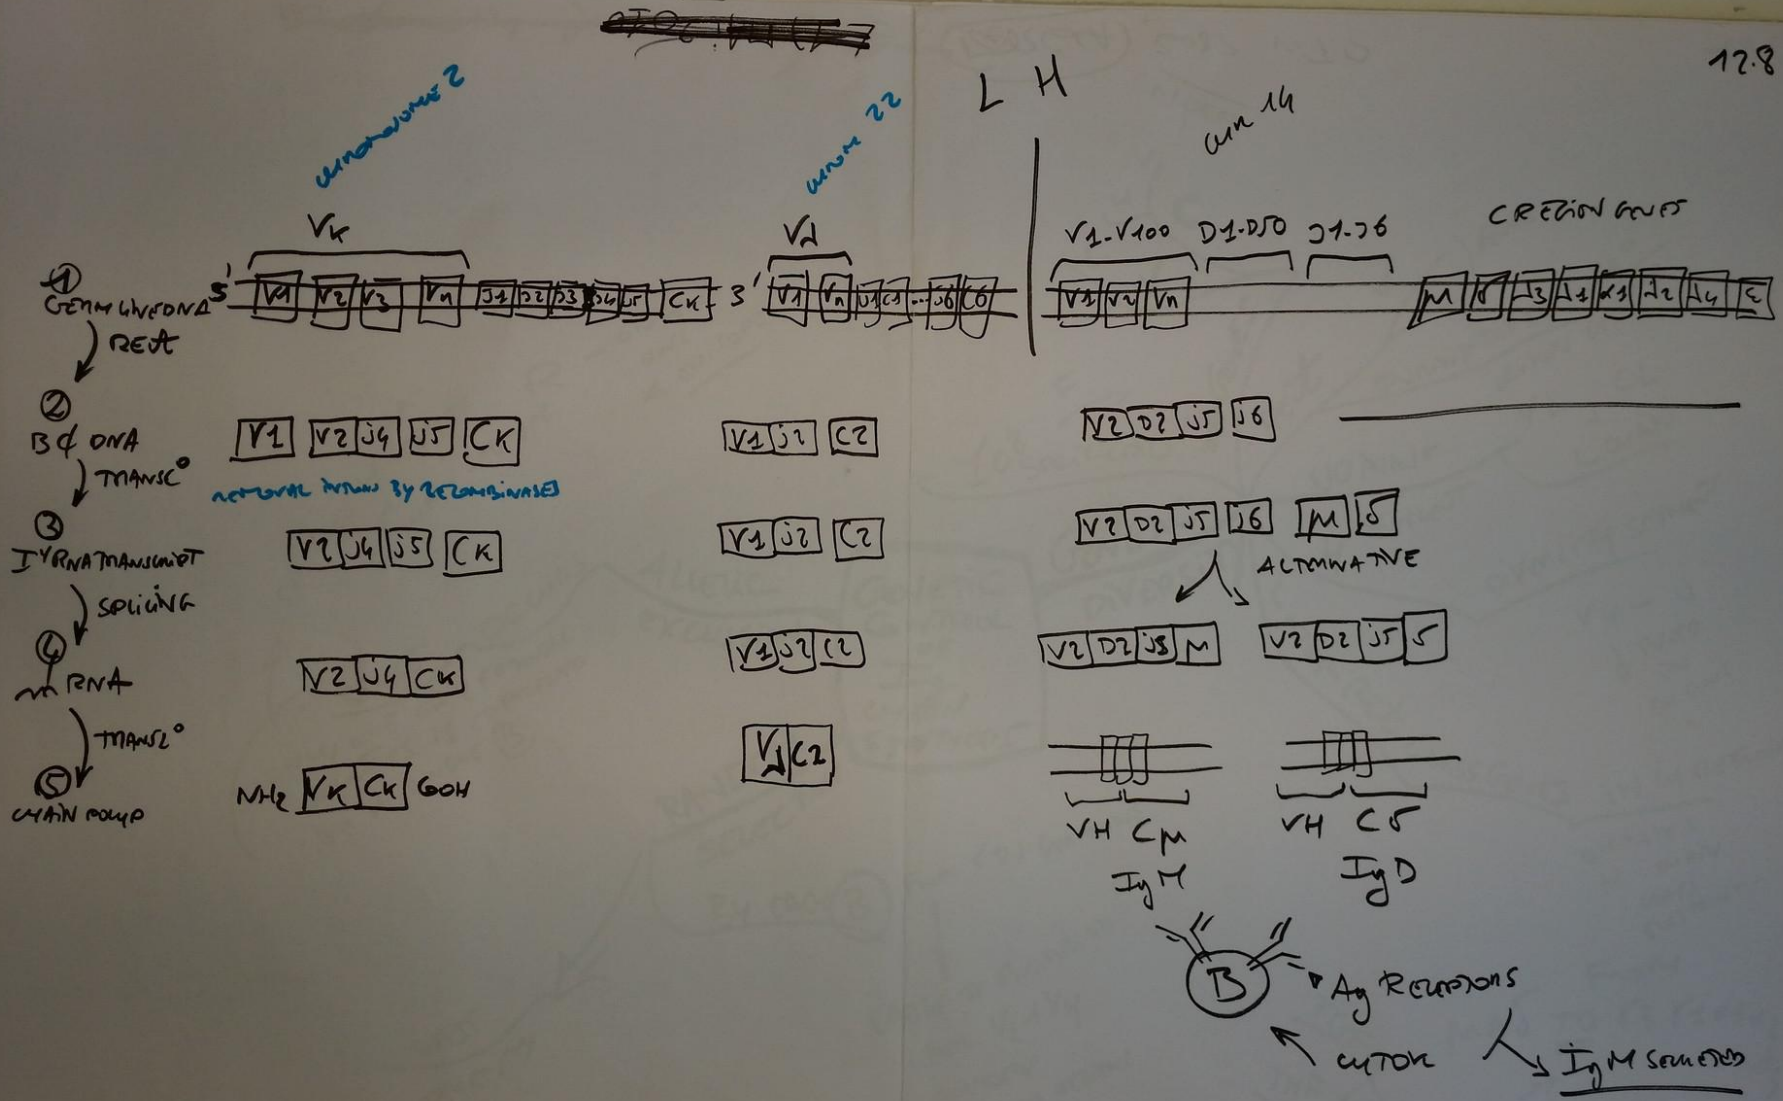 12.8
L H
CHROMOSOME 2
CHROM 22
CHR 14
Vκ
Vλ
V1-V100 D1-D50 J1-J6 C REGION GENES
①
GERMLINE DNA
5' V1 V2 V3 Vn J1 J2 J3 J4 J5 Cκ 3'
V1 Vn J1 C1 ... J6 C6
V1 V2 Vn
μ δ γ3 γ1 α1 γ2 γ4 ε
REA
②
B ȼ DNA
V1 V2 J4 J5 Cκ
V1 J2 C2
V2 D2 J5 J6
TRANSC°
REMOVAL INTRONS BY RECOMBINASES
③
I^y RNA TRANSCRIPT
V2 J4 J5 Cκ
V1 J2 C2
V2 D2 J5 J6 μ δ
ALTERNATIVE
SPLICING
④
mRNA
V2 J4 Cκ
V1 J2 C2
V2 D2 J5 μ
V2 D2 J5 δ
TRANSL°
⑤
CHAIN POLYP
NH2 Vκ Cκ COOH
Vλ C2
VH Cμ
VH Cδ
IgM
IgD
B
Ag RECEPTORS
CYTOK
IgM SECRETED